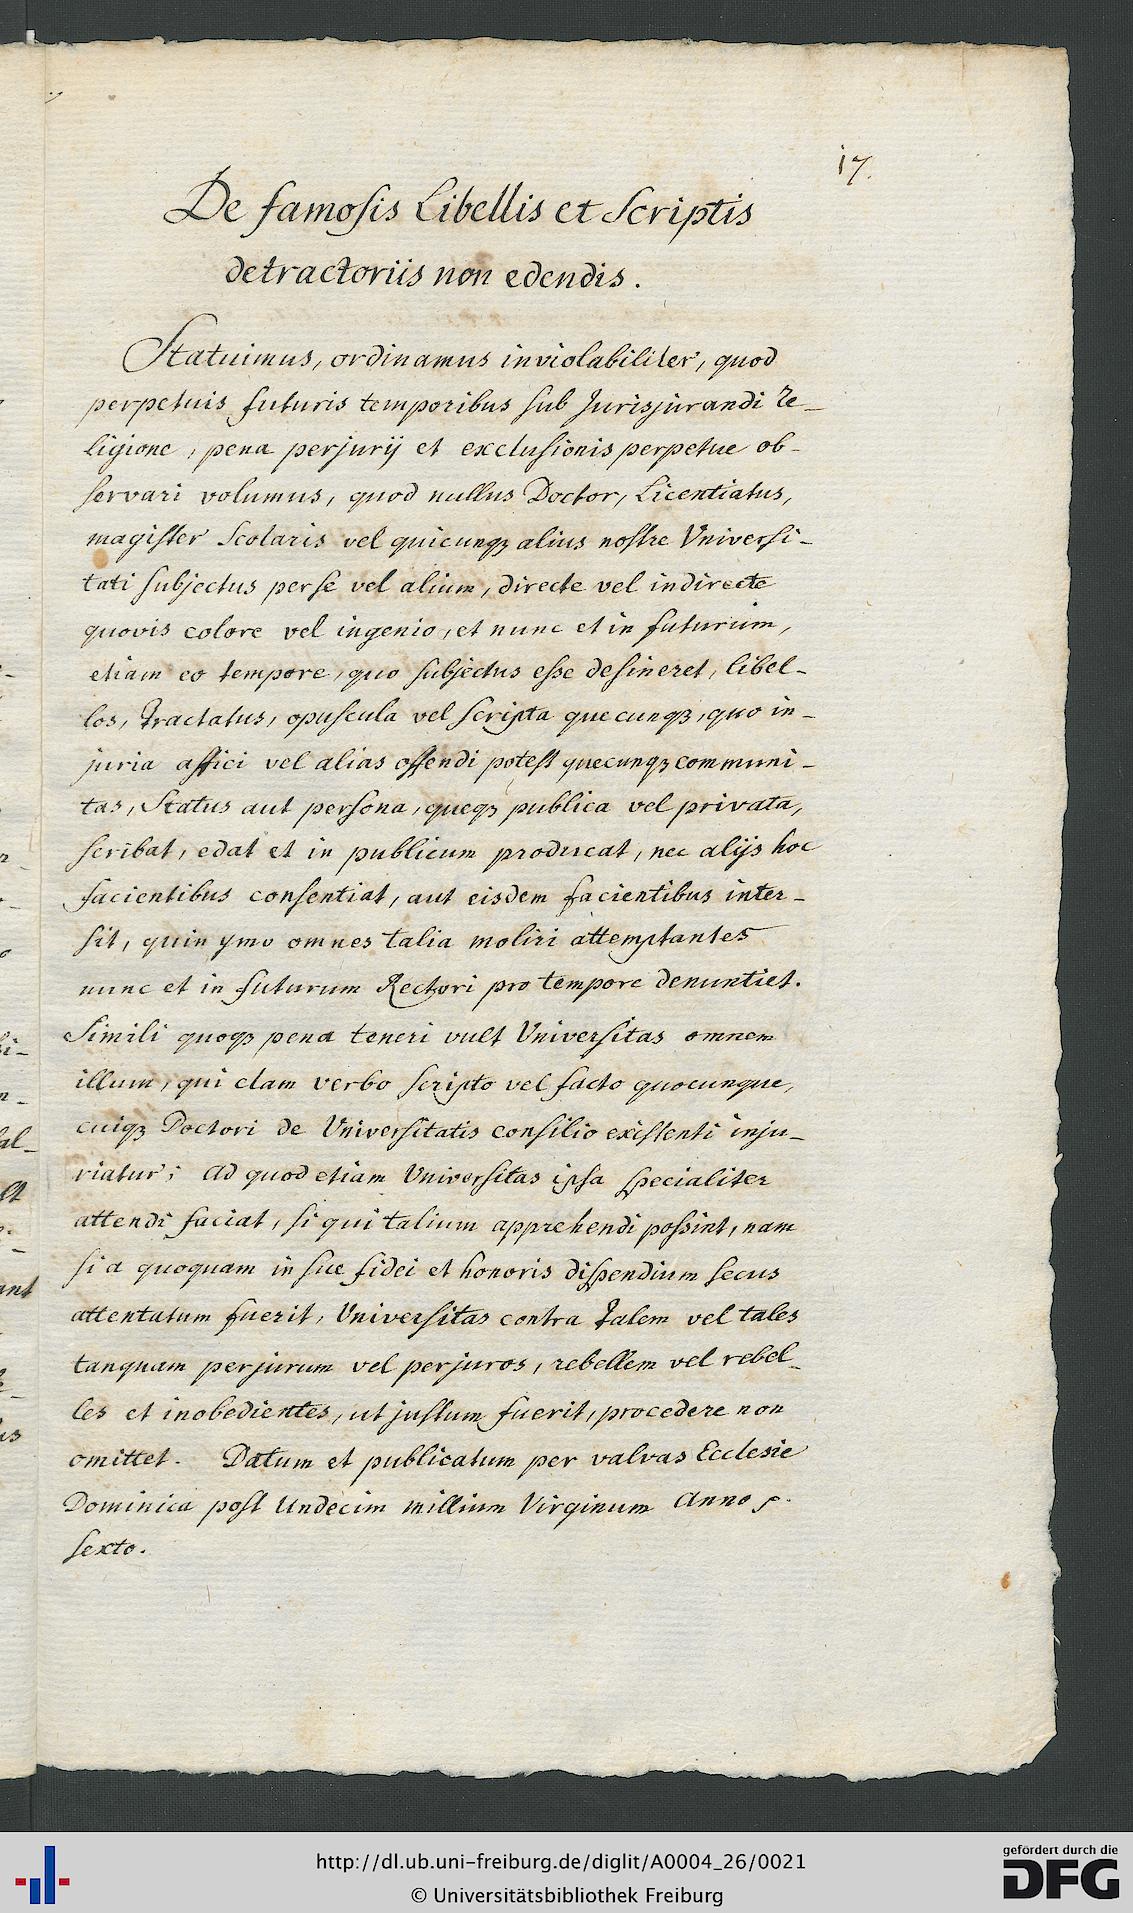 17.
De famosis Libellis et Scriptis
detractoriis non edendis.
Statuimus, ordinamus inviolabiliter, quod
perpetuis futuris temporibus sub Jurisjurandi re-
ligione, pena perjurij et exclusionis perpetue ob-
servari volumus, quod nullus Doctor, Licentiatus,
magister Scolaris vel quicunqꝫ alius nostre Universi-
tati subjectus per se vel alium, directe vel indirecte
quovis colore vel ingenio, et nunc et in futurum,
etiam eo tempore, quo subjectus esse desineret, libel-
los, Tractatus, opuscula vel scripta quecunqꝫ, quo in-
juria affici vel alias offendi potest quecunqꝫ communi-
tas, Status aut persona, queqꝫ publica vel privata,
scribat, edat et in publicum producat, nec alijs hoc
facientibus consentiat, aut eisdem facientibus inter-
sit, quin ymo omnes talia moliri attemptantes
nunc et in futurum Rectori pro tempore denuntiet.
Simili quoqꝫ pena teneri vult Universitas omnem
illum, qui clam verbo scripto vel facto quocunque,
cuiqꝫ Doctori de Universitatis consilio existenti inju-
riatur; Ad quod etiam Universitas ipsa specialiter
attendi faciat, si qui talium apprehendi possint, nam
si a quoquam in sue fidei et honoris dispendium secus
attentatum fuerit, Universitas contra Talem vel tales
tanquam perjurum vel perjuros, rebellem vel rebel-
les et inobedientes, ut justum fuerit, procedere non
omittet. Datum et publicatum per valvas Ecclesie
Dominica post Undecim millium Virginum Anno
sexto.
http://dl.ub.uni-freiburg.de/diglit/A0004_26/0021
© Universitätsbibliothek Freiburg
gefördert durch die
DFG